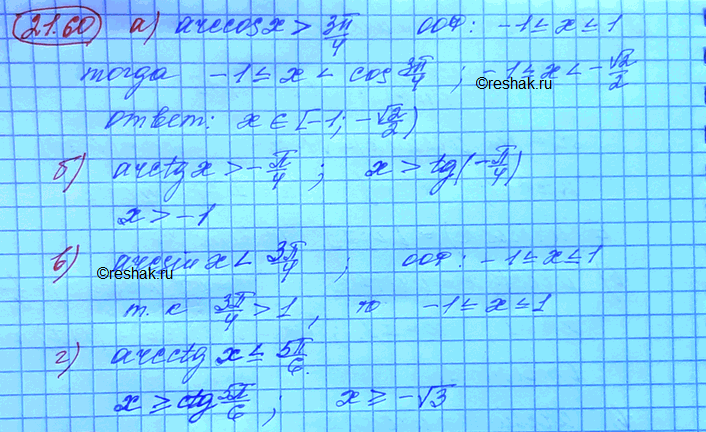 21.60 а) arccos x > 3π/4 ООФ: -1 ≤ x ≤ 1
тогда -1 ≤ x < cos 3π/4 ; -1 ≤ x < -√2/2
©reshak.ru
ответ: x ∈ [-1; -√2/2)
б) arctg x > -π/4 ; x > tg(-π/4)
x > -1
в) arcsin x < 3π/4 ; ООФ: -1 ≤ x ≤ 1
©reshak.ru
т. к 3π/4 > 1, то -1 ≤ x ≤ 1
г) arcctg x ≤ 5π/6
x ≥ ctg 5π/6 ; x ≥ -√3